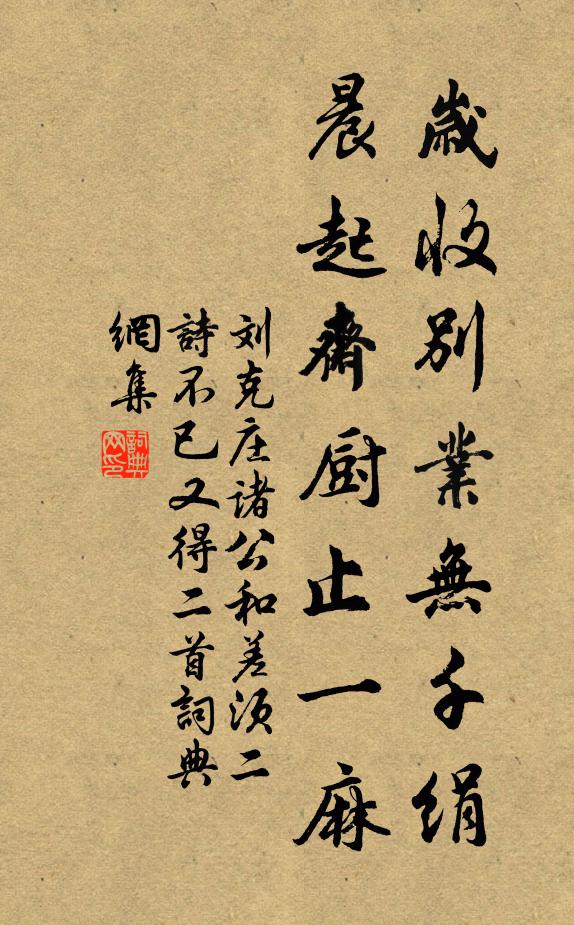 歲收別業無千絹
晨起齋厨止一麻
刘克庄諸公和差須二
詩不已又得二首詞典
網集
詞典
网印